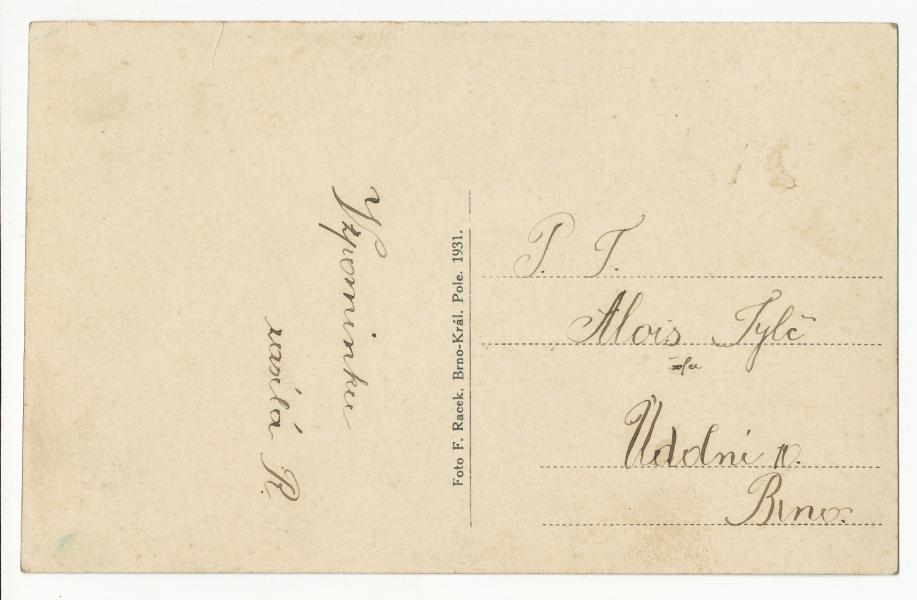 Vzpomínku
zasílá R.
Foto F. Racek, Brno-Král. Pole. 1931.
P. T.
Alois Tylč
Údolní 10.
Brno.